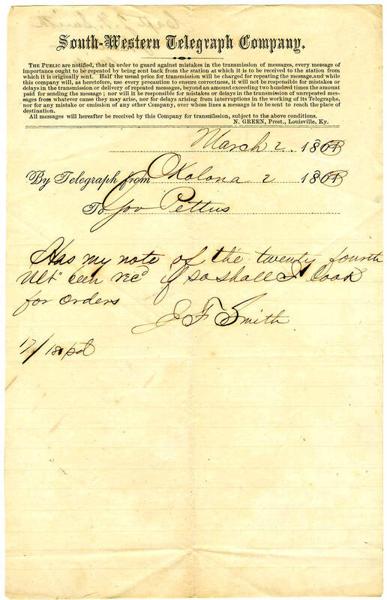 South-Western Telegraph Company.
THE PUBLIC are notified, that in order to guard against mistakes in the transmission of messages, every message of
importance ought to be repeated by being sent back from the station at which it is to be received to the station from
which it is originally sent. Half the usual price for transmission will be charged for repeating the message, and while
this company will, as heretofore, use every precaution to ensure correctness, it will not be responsible for mistakes or
delays in the transmission or delivery of repeated messages, beyond an amount exceeding two hundred times the amount
paid for sending the message; nor will it be responsible for mistakes or delays in the transmission of unrepeated mess-
ages from whatever cause they may arise, nor for delays arising from interruptions in the working of its Telegraphs,
nor for any mistake or omission of any other Company, over whose lines a message is to be sent to reach the place of
destination.
All messages will hereafter be received by this Company for transmission, subject to the above conditions.
N. GREEN, Prest., Louisville, Ky.
March 2 186
By Telegraph from Okolona 2 186
To Gov Pettus
Has my note of the twenty fourth
Ult been recd if so shall I look
for orders
E F Smith
17/180 pd